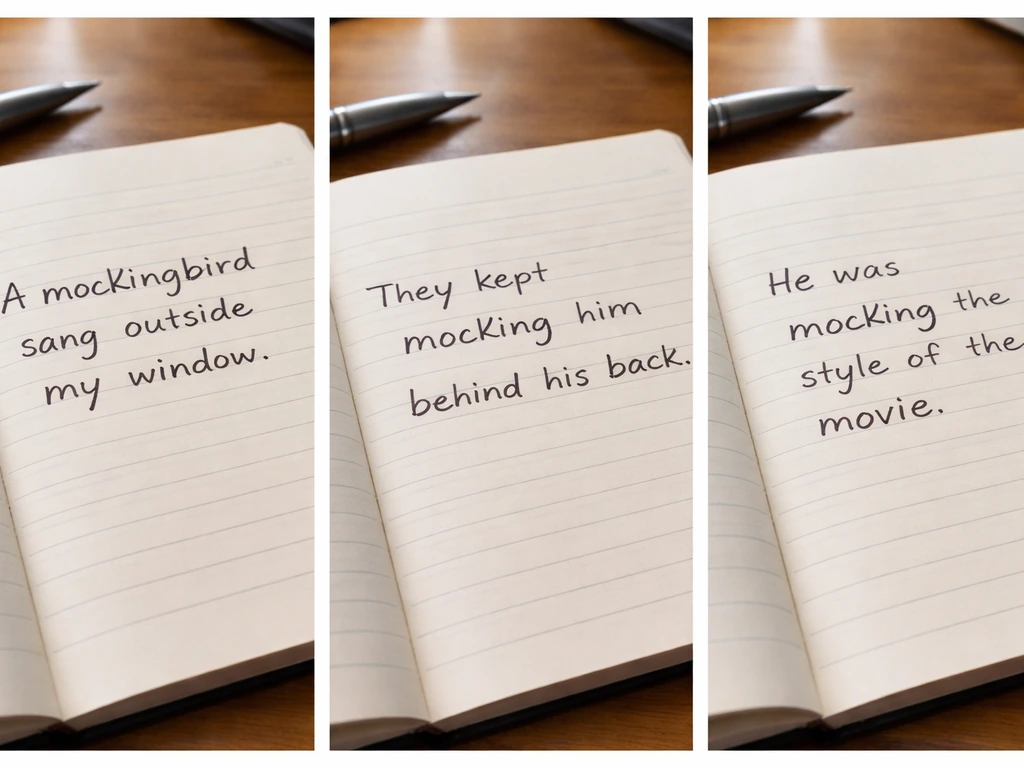 A mockingbird
sang outside
my window.
They kept
mocking him
behind his back.
He was
mocking the
style of the
movie.